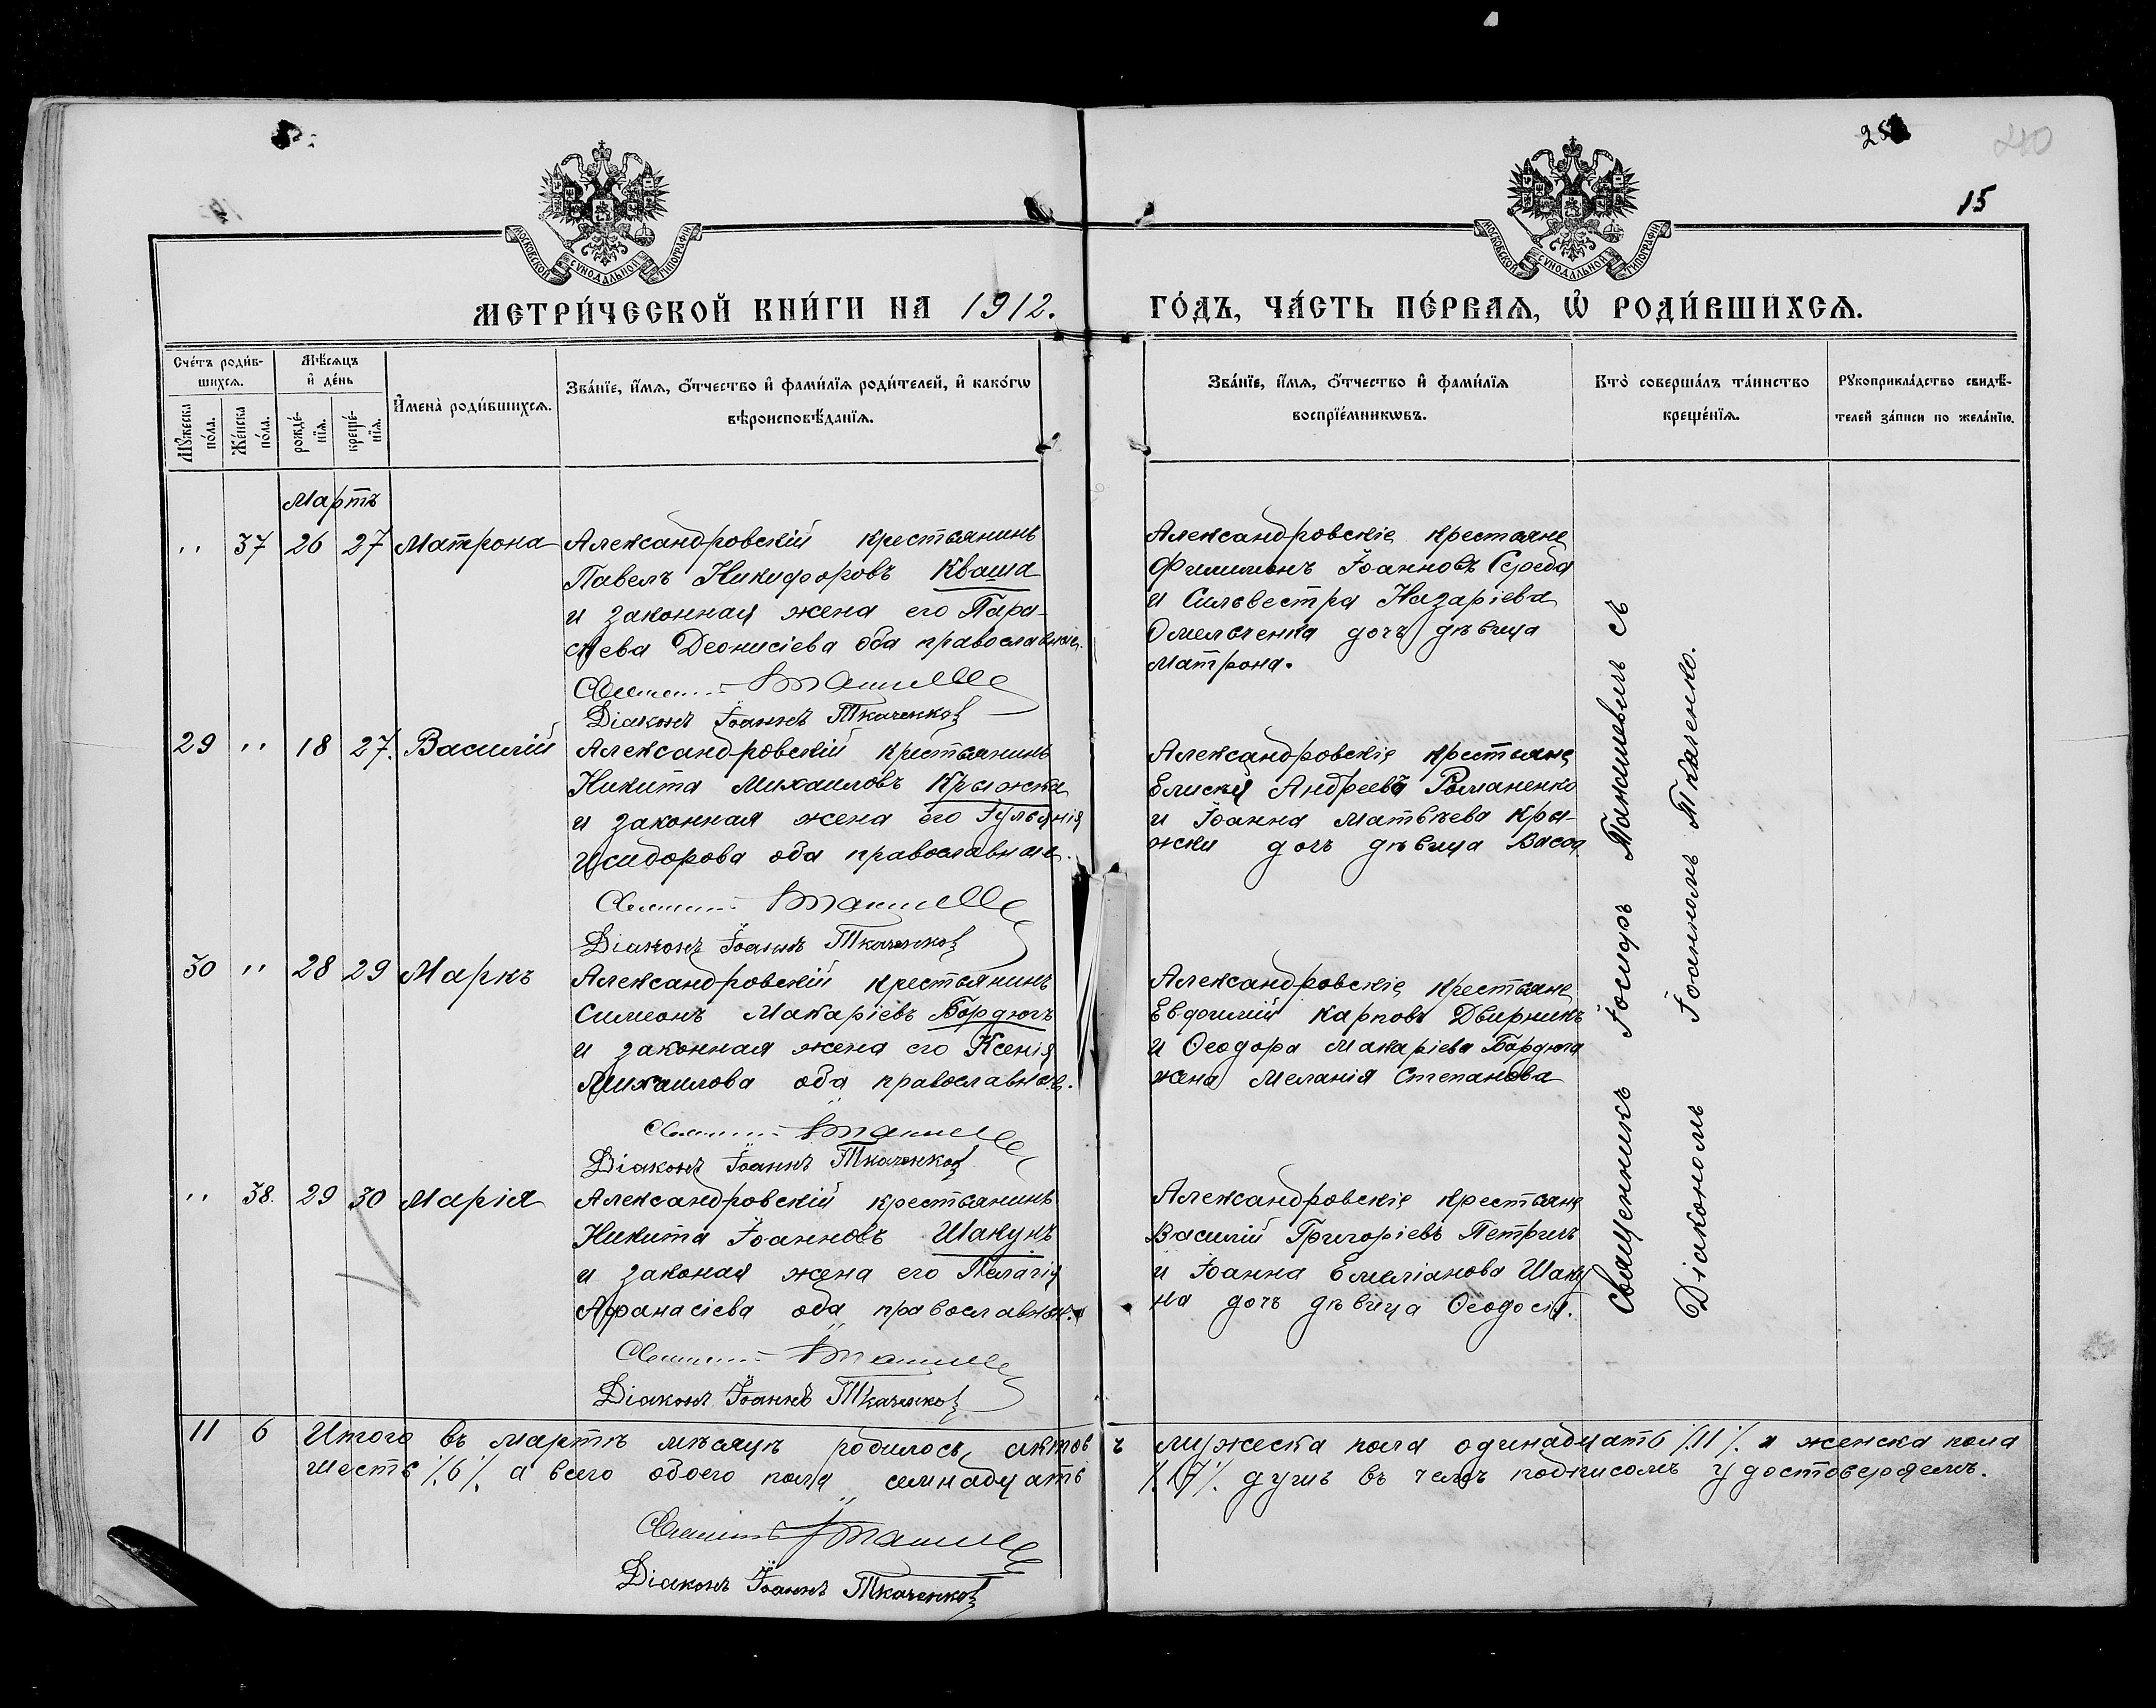 25
210
15
МОСКОВСКОЙ СѴНОДАЛЬНОЙ ТИПОГРАФІИ
МОСКОВСКОЙ СѴНОДАЛЬНОЙ ТИПОГРАФІИ
МЕТРИ́ЧЕСКОЙ КНИ́ГИ НА 1912. ГО́ДЪ, ЧА́СТЬ ПЕ́РВАѦ, Ѡ҆ РОДИ́ВШИХСѦ.
Сче́тъ роди́в-
шихсѧ.
Мꙋ́жеска по́ла.
Же́нска по́ла.
Мѣ́сѧцъ и҆ де́нь
рожде́-
нїѧ.
креще́-
нїѧ.
И҆мена̀ роди́вшихсѧ.
Зва́нїе, и҆́мѧ, ѻ҆́тчество и҆ фами́лїѧ роди́телей, и҆ како́гѡ
вѣроисповѣ́данїѧ.
Зва́нїе, и҆́мѧ, ѻ҆́тчество и҆ фами́лїѧ
воспрїе́мникѡвъ.
Кто̀ соверша́лъ та́инство
креще́нїѧ.
Рꙋкоприкла́дство свидѣ́-
телей за́писи по жела́нїю.
Мартъ
" 37 26 27 Матрона Александровскій крестьянинъ
Павелъ Никифоровъ Кваша
и законная жена его Пара-
скева Деонисіева оба православные.
Діаконъ Іоаннъ Ткаченко
Александровскіе крестьяне
Филимонъ Іоанновъ Середа
и Сильвестра Назаріева
Омельченка дочь дѣвица
Матрона.
29 " 18 27. Василій Александровскій крестьянинъ
Никита Михаиловъ Крыжка
и законная жена его Іульянія
Исидорова оба православные.
Діаконъ Іоаннъ Ткаченко
Александровскіе крестьяне
Елисей Андреевъ Романенко
и Іоанна Матвѣева Кры-
жки дочь дѣвица Васса
30 " 28 29 Маркъ Александровскій крестьянинъ
Симеонъ Макаріевъ Бордюгъ
и законная жена его Ксенія
Михаилова оба православные.
Діаконъ Іоаннъ Ткаченко
Александровскіе крестьяне
Евдокимій Карповъ Двирникъ
и Ѳеодора Макаріева Бордюга
жена Меланія Степанова
" 38. 29 30 Марія Александровскій крестьянинъ
Никита Іоанновъ Шакунъ
и законая жена его Пелагія
Афанасіева оба православные.
Діаконъ Іоаннъ Ткаченко
Александровскіе крестьяне
Василій Григоріевъ Петричъ
и Іоанна Емеліанова Шаку
на дочь дѣвица Ѳеодосія.
Священникъ Іосифъ Танцюевичъ съ
Діакономъ Іоанномъ Ткаченко.
11 6 Итого въ мартѣ мѣсяцѣ родилось актовъ мужеска пола одинадцать /11/ и женска пола
шесть /6/ а всего обоего пола семнадцать /17/ душъ въ чемъ подписомъ удостоверяемъ.
Діаконъ Іоаннъ Ткаченко